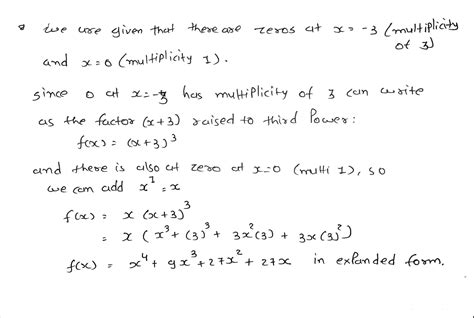 we are given that there are zeros at x = -3 (multiplicity of 3)
and x=0 (multiplicity 1).
since 0 at x=-3 has multiplicity of 3 can write
as the factor (x+3) raised to third Power:
f(x) = (x+3)³
and there is also at zero at x=0 (multi 1), so
we can add x¹ = x
f(x) = x (x+3)³
= x (x³ + (3)³ + 3x²(3) + 3x(3)²)
f(x) = x⁴ + 9x³ + 27x² + 27x in expanded form.